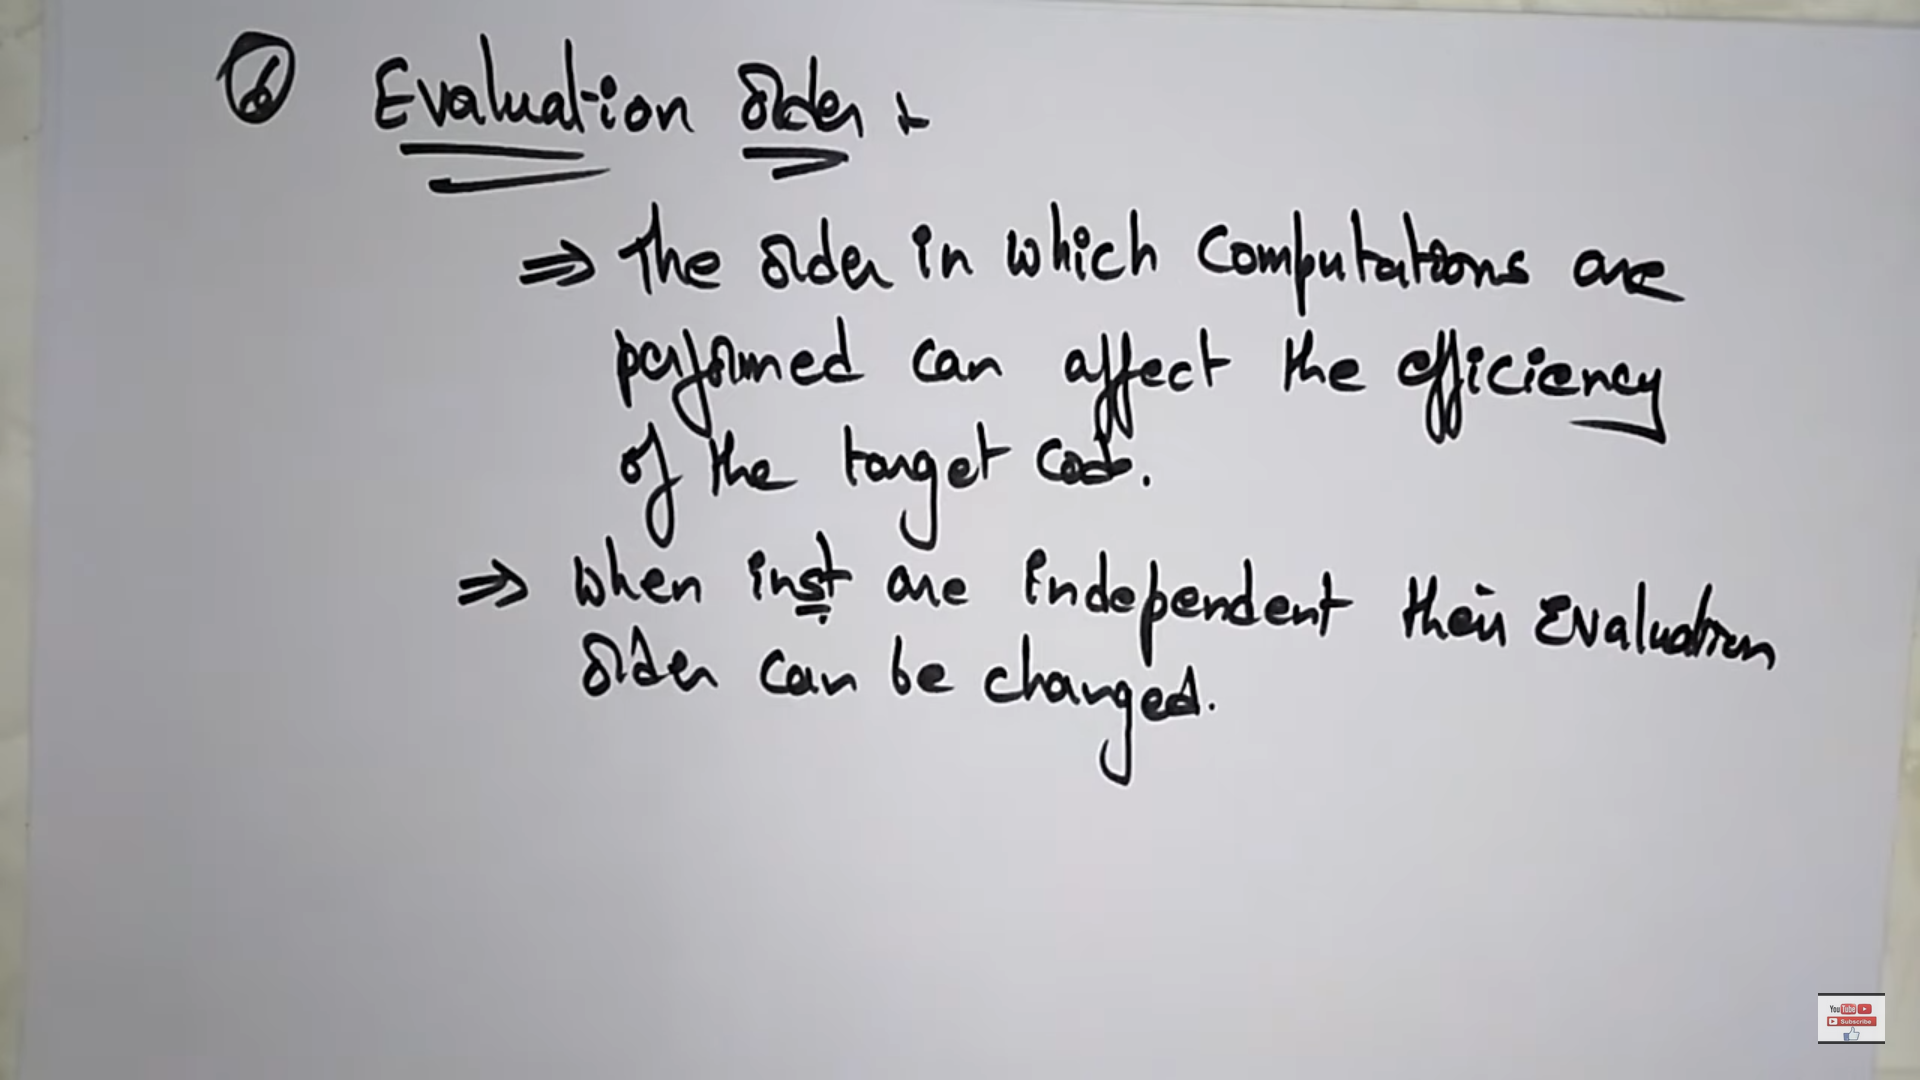 6 Evaluation Order :-
⇒ The order in which computations are
performed can affect the efficiency
of the target code.
⇒ When inst are independent their Evaluation
Order can be changed.
YouTube
Subscribe